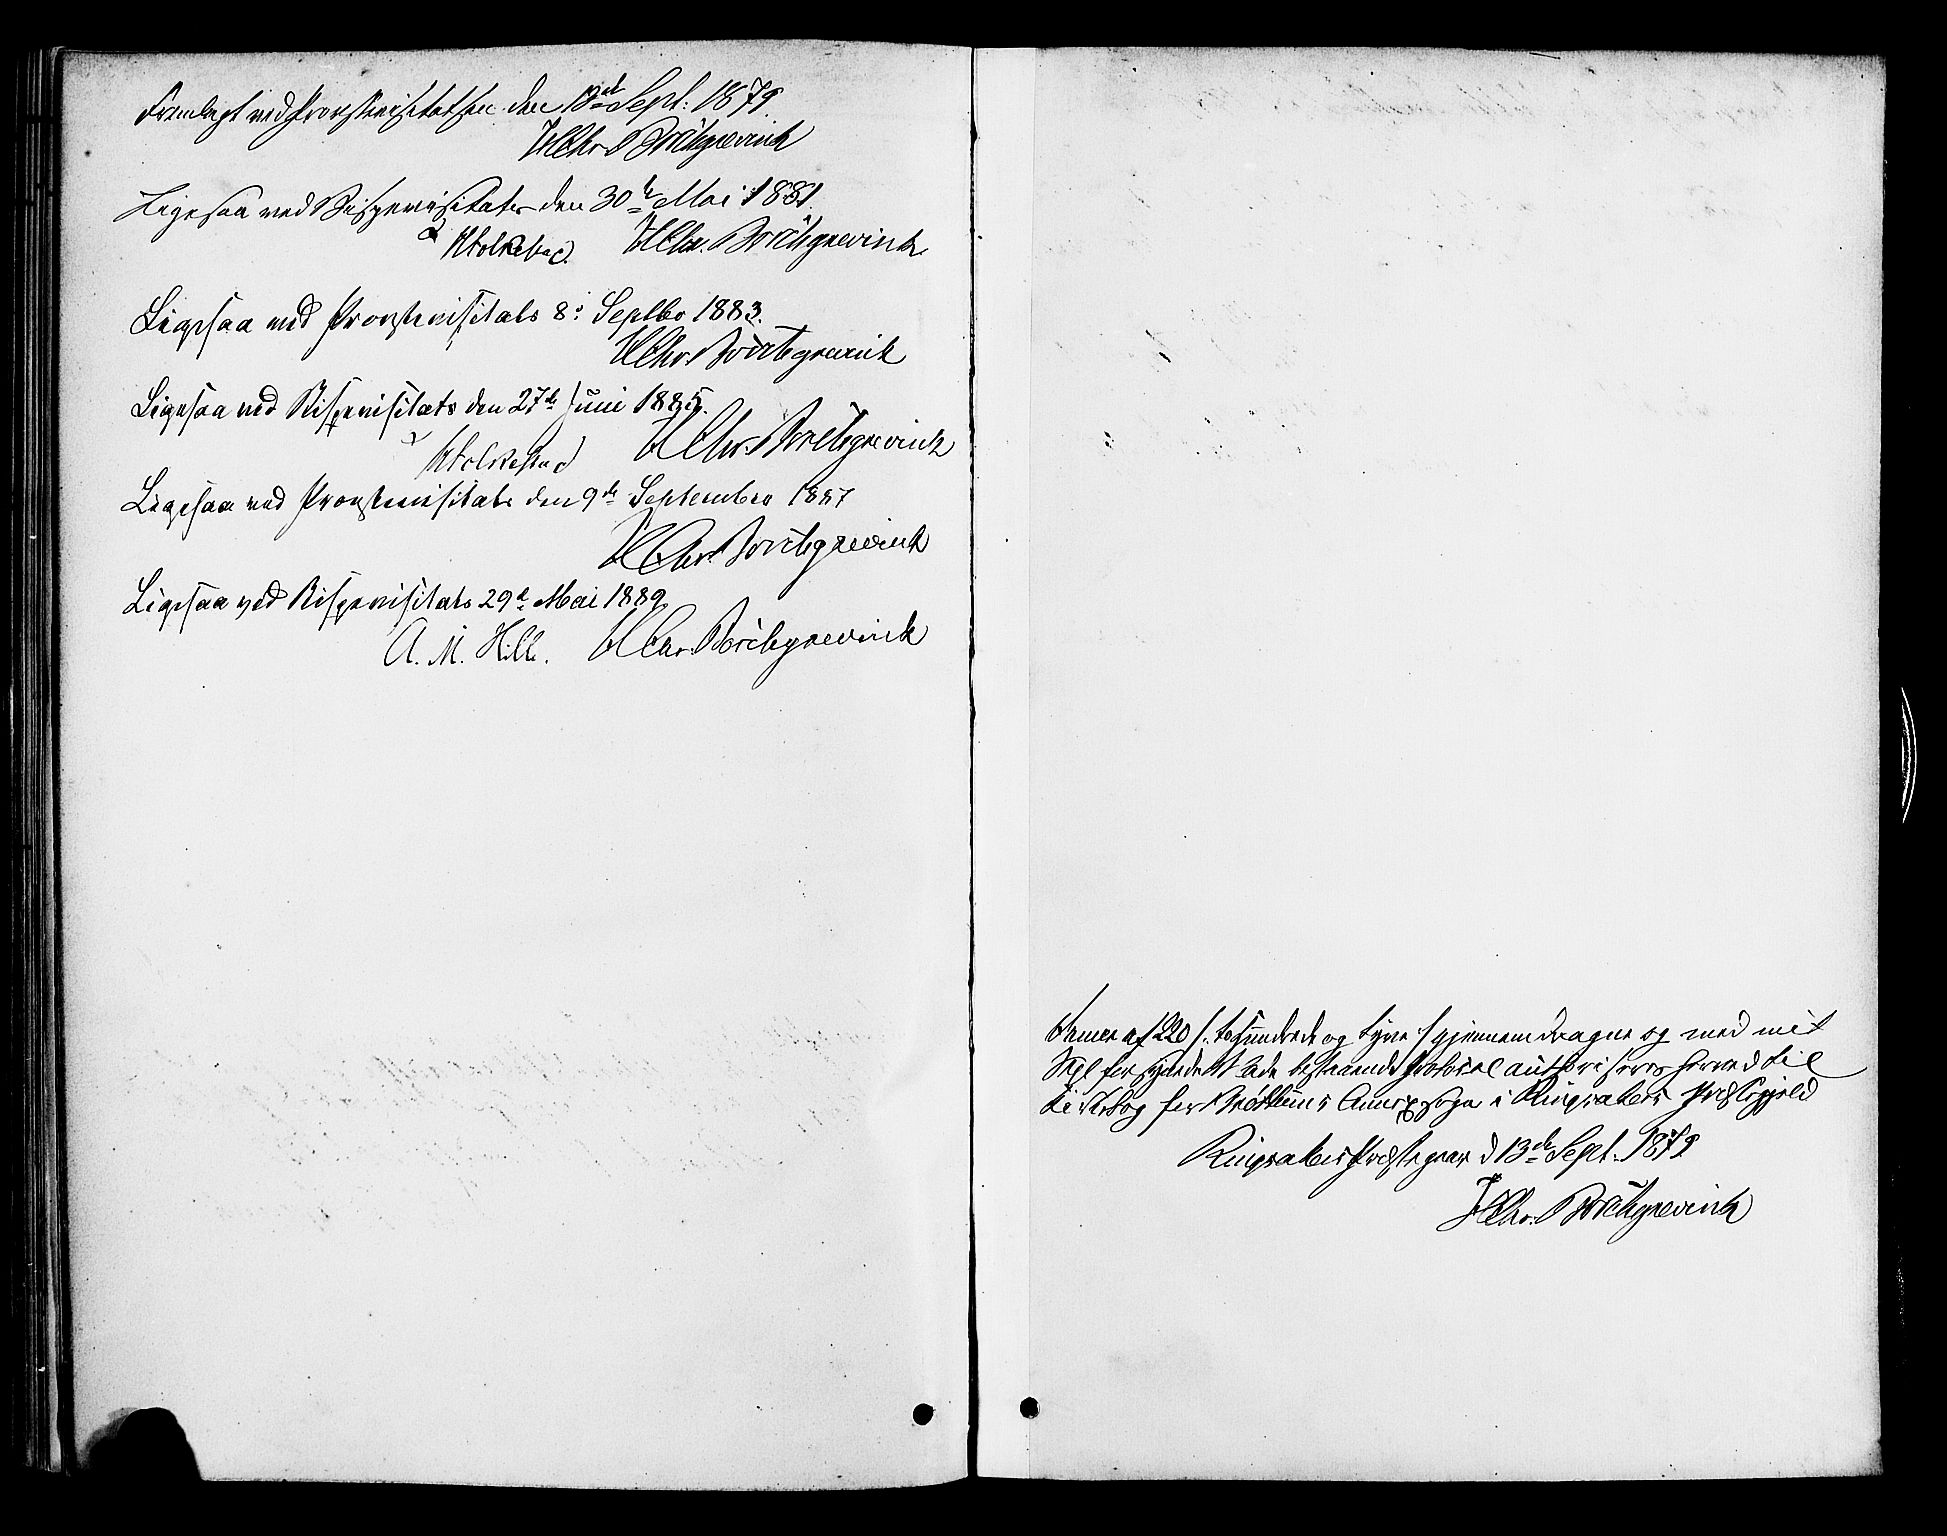 Fremlagt ved Provstevisitatsen den 13de Sept. 1879.
H Chr. Borchgrevink
Ligesaa ved Bispevisitats den 30te Mai 1881.
Folkestad. H Chr. Borchgrevink
Ligesaa ved Provstevisitats 8: Septbr 1883.
H Chr. Borchgrevink
Ligesaa ved Bispevisitats den 27de Juni 1885.
Folkestad H Chr. Borchgrevink
Ligesaa ved Provstevisitats den 9de September 1887
H Chr. Borchgrevink
Ligesaa ved Bispevisitats 29de Mai 1889
A. M. Hille. H Chr. Borchgrevink
af 220 /: tohundrede og tyve :/ gjennemdragne og med mit
Segl forsynede Blade bestaaende Protocol authoriseres herved til
Kirkebog for Brøttums Annexsogn i Ringsakers Præstegjeld
Ringsakers Præstegaard d 13de Sept. 1879
H Chr. Borchgrevink